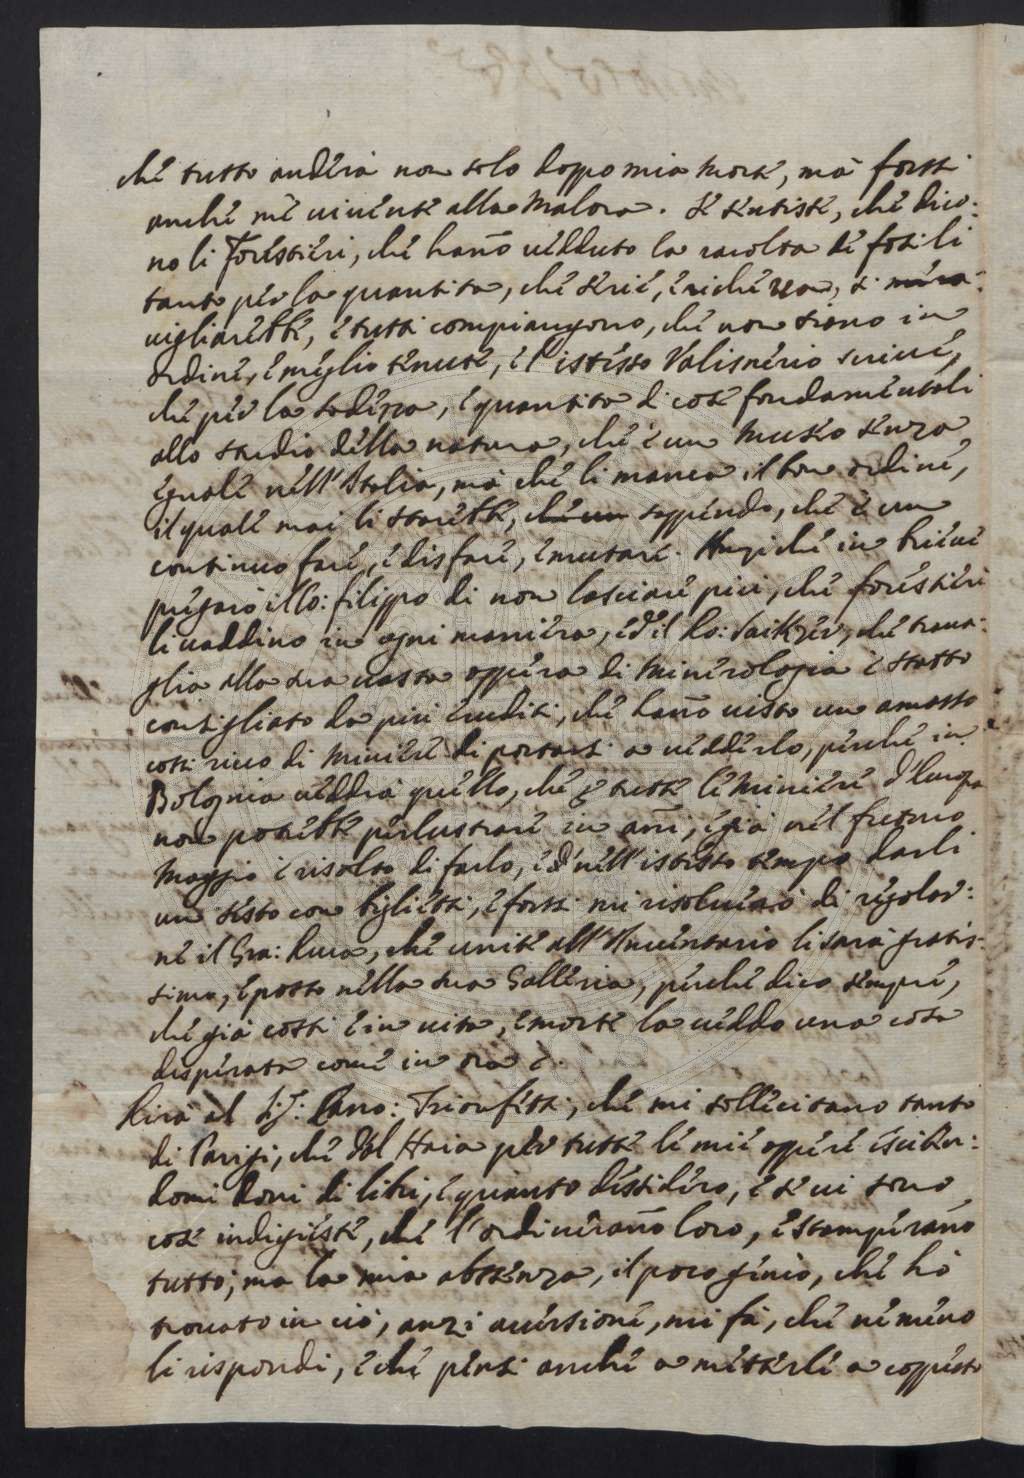 che tutto anderà non solo doppo mia morte, mà forssi
anche mè vivente alla malora. Se sentiste, che dico:
no li Forestieri, che hano vedduto la racolta de fosili
tanto per la quantita, che serie, è richezza, si mera:
vigliarebbe, è tutti compiangono, che non siano in
ordine, è meglio tenute, è l'istesso Valisnerio scrive,
che per la sodezza, è quantita di cose fondamentali
allo studio della natura, che è un museo senza
eguale nell'Italia, mà che li manca il bon ordine,
il quale mai li starebbe, che un sappendo, che è un
continuo fare, è disfare, è mutare. Anzi che in brieve
pregarò il Co: filippo di non lasciare piu, che forestieri
li vaddino in ogni maniera, ed il Do: che trava:
glia alla sua vasta oppera di Minerologia è statto
consigliato da piu eruditi, che hano visto un amasso
cossi ricco di miniere di portarsi a vedderlo, perche in
Bolognia veddra quello, che tutte le miniere d'Europa
non potrebbe perlustrare in ani, è già nel
Maggio è risolto di farlo, ed nell'istesso tempo darli
un sesto con biglietti, è forssi mi risolverò di regolar:
ne il Gra: Duca, che unite all'Inventario li sarà gratis:
simo, è posto nella sua Galleria, perche dico sempre,
che già cossi è in vita, è morte la veddo una cosa
disperata come in ora è.
Dirà al Sig: Cano: Trionfetti, che mi sollecitano tanto
di Parigi, che dal Haia per tutte le mie oppere esciben:
domi doni di libri, è quanto dessidero, è se vi sono
cose indigeste, che l'ordinerano loro, è stamperano
tutto; ma la mia absenza, il poco genio, che hò
trovato in ciò, anzi aversione, mi fà, che ne meno
li rispondi, è che pensi anche a metterle a coppesto